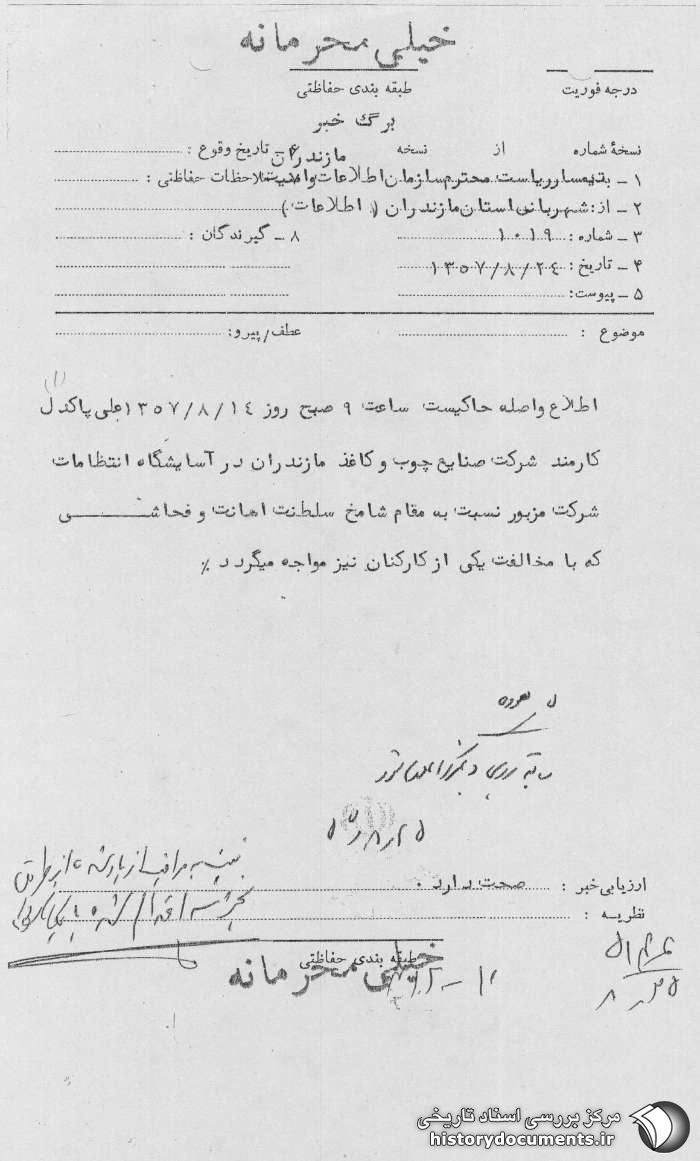 خیلی محرمانه
درجه فوریت
طبقه بندی حفاظتی
برگ خبر
نسخهٔ شماره از نسخه
۱ ـ بتیمسار ریاست محترم سازمان اطلاعات و امنیت مازندران
۲ ـ از: شهربانی استان مازندران (اطلاعات)
۳ ـ شماره: ۱۰۱۹
۴ ـ تاریخ: ۱۳۵۷/۸/۲٤
۵ ـ پیوست:
۶ ـ تاریخ وقوع:
ملاحظات حفاظتی:
۸ ـ گیرندگان:
موضوع :
عطف/پیرو:
(۱)
اطلاع واصله حاکیست ساعت ۹ صبح روز ۱۳۵۷/۸/۱٤ علی پاکدل
کارمند شرکت صنایع چوب و کاغذ مازندران در آسایشگاه انتظامات
شرکت مزبور نسبت به مقام شامخ سلطنت اهانت و فحاشـــــی
که با مخالفت یکی از کارکنان نیز مواجه میگردد ٪
ارزیابی خبر : صحت دارد .
نظریه :
طبقه بندی حفاظتی
خیلی محرمانه
مرکز بررسی اسناد تاریخی
historydocuments.ir